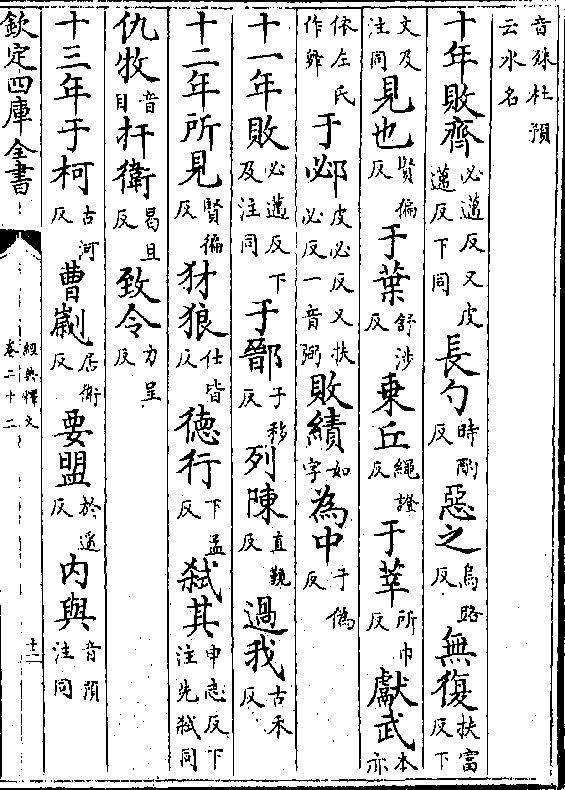 音殊杜預云水名
十年敗齊必邁反又皮邁反下同長勺時酌反惡之烏路反無復扶富反下
文及注同見也賢徧反于葉舒涉反乗丘繩證反于莘所巾反獻武本亦
依左氏作舞于邲皮必反又扶必反一音弼敗績如字為中于偽反
十一年敗必邁反下及注同于鄑子移反列陳直覲反過我古禾反
十二年所見賢徧反犲狼仕皆反德行下孟反弑其申志反下注先弑同
仇牧音目扞衛曷旦反致令力呈反
十三年于柯古河反曹劌居衛反要盟於遥反内與音預注同
欽定四庫全書
經典釋文
卷二十二
十二